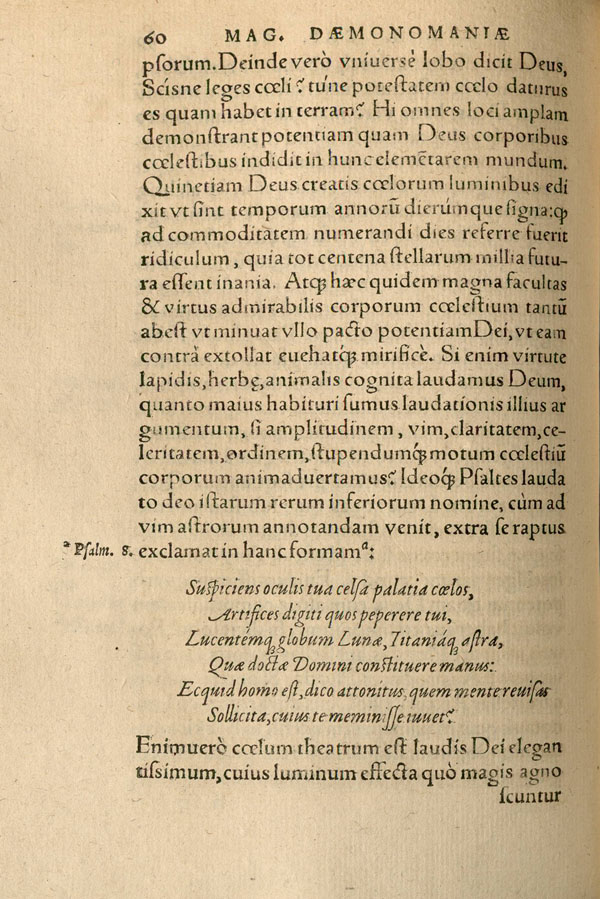 60 MAG. DÆMONOMANIÆ
psorum. Deinde verò vniuersè Iobo dicit Deus,
Scisne leges cœli? túne potestatem cœlo daturus
es quam habet in terram? Hi omnes loci amplam
demonstrant potentiam quam Deus corporibus
cœlestibus indidit in hunc elemẽtarem mundum.
Quinetiam Deus creatis cœlorum luminibus edi
xit vt sint temporum annorũ dierúmque signa: qꝫ
ad commoditatem numerandi dies referre fuerit
ridiculum, quia tot centena stellarum millia futu-
ra essent inania. Atqꝫ hæc quidem magna facultas
& virtus admirabilis corporum cœlestium tantũ
abest vt minuat vllo pacto potentiam Dei, vt eam
contrà extollat euehatqꝫ mirificè. Si enim virtute
lapidis, herbę, animalis cognita laudamus Deum,
quanto maius habituri sumus laudationis illius ar
gumentum, si amplitudinem, vim, claritatem, ce-
leritatem, ordinem, stupendumqꝫ motum cœlestiũ
corporum animaduertamus? Ideoqꝫ Psaltes lauda
to deo istarum rerum inferiorum nomine, cùm ad
vim astrorum annotandam venit, extra se raptus
ᵃ Psalm. 8. exclamat in hanc formamᵃ:
Suspiciens oculis tua celsa palatia cœlos,
Artifices digiti quos peperere tui,
Lucentémqꝫ globum Lunæ, Titaniáqꝫ astra,
Quæ doctæ Domini constituere manus:
Ecquid homo est, dico attonitus, quem mente reuisas
Sollicita, cuius te meminisse iuuet?
Enimuerò cœlum theatrum est laudis Dei elegan
tissimum, cuius luminum effecta quò magis agno
scuntur